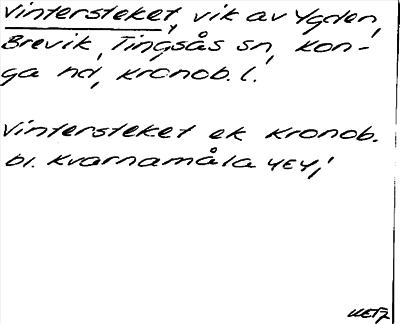 Vintersteket, vik av Ygden,
Brevik, Tingsås sn, Kon-
ga hd, Kronob. l.
Vintersteket ek Kronob.
bl. Kvarnamåla 4E4j